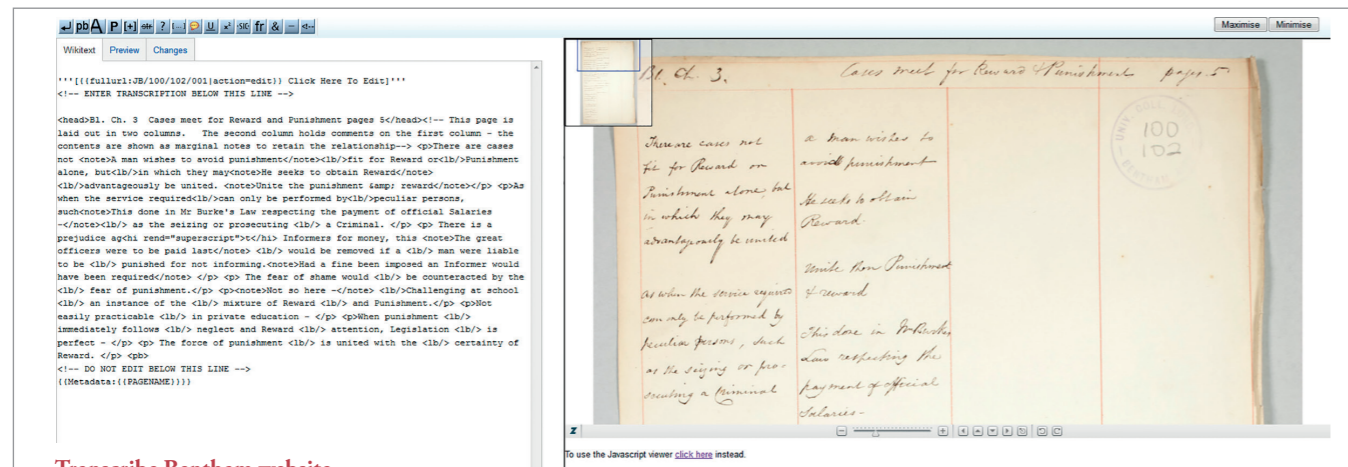 pb A P [+] str ? [...] U x² SIC fr & –
Maximise Minimise
Wikitext Preview Changes
'''[{{fullurl:JB/100/102/001|action=edit}} Click Here To Edit]'''
<!-- ENTER TRANSCRIPTION BELOW THIS LINE -->
<head>Bl. Ch. 3  Cases meet for Reward and Punishment pages 5</head><!-- This page is
laid out in two columns.   The second column holds comments on the first column - the
contents are shown as marginal notes to retain the relationship--> <p>There are cases
not <note>A man wishes to avoid punishment</note><lb/>fit for Reward or<lb/>Punishment
alone, but<lb/>in which they may<note>He seeks to obtain Reward</note>
<lb/>advantageously be united. <note>Unite the punishment &amp; reward</note></p> <p>As
when the service required<lb/>can only be performed by<lb/>peculiar persons,
such<note>This done in Mr Burke's Law respecting the payment of official Salaries
-</note><lb/> as the seizing or prosecuting <lb/> a Criminal. </p> <p> There is a
prejudice ag<hi rend="superscript">t</hi> Informers for money, this <note>The great
officers were to be paid last</note> <lb/> would be removed if a <lb/> man were liable
to be <lb/> punished for not informing.<note>Had a fine been imposed an Informer would
have been required</note> </p> <p> The fear of shame would <lb/> be counteracted by the
<lb/> fear of punishment.</p> <p><note>Not so here -</note> <lb/>Challenging at school
<lb/> an instance of the <lb/> mixture of Reward <lb/> and Punishment.</p> <p>Not
easily practicable <lb/> in private education - </p> <p>When punishment <lb/>
immediately follows <lb/> neglect and Reward <lb/> attention, Legislation <lb/> is
perfect - </p> <p> The force of punishment <lb/> is united with the <lb/> certainty of
Reward. </p> <pb>
<!-- DO NOT EDIT BELOW THIS LINE -->
{{Metadata:{{PAGENAME}}}}
Bl. Ch. 3. Cases meet for Reward & Punishment pages. 5
UNIV. COLL.
100
102
BENTHAM
There are cases not
fit for Reward or
Punishment alone, but
in which they may
advantageously be united
as when the service required
can only be performed by
peculiar persons, such
as the seizing or pro-
secuting a Criminal
a man wishes to
avoid punishment
He seeks to obtain
Reward.
Unite then Punishment
& reward
This done in Mr Burke's
Law respecting the
payment of official
Salaries-
To use the Javascript viewer click here instead.
Transcribe Bentham website